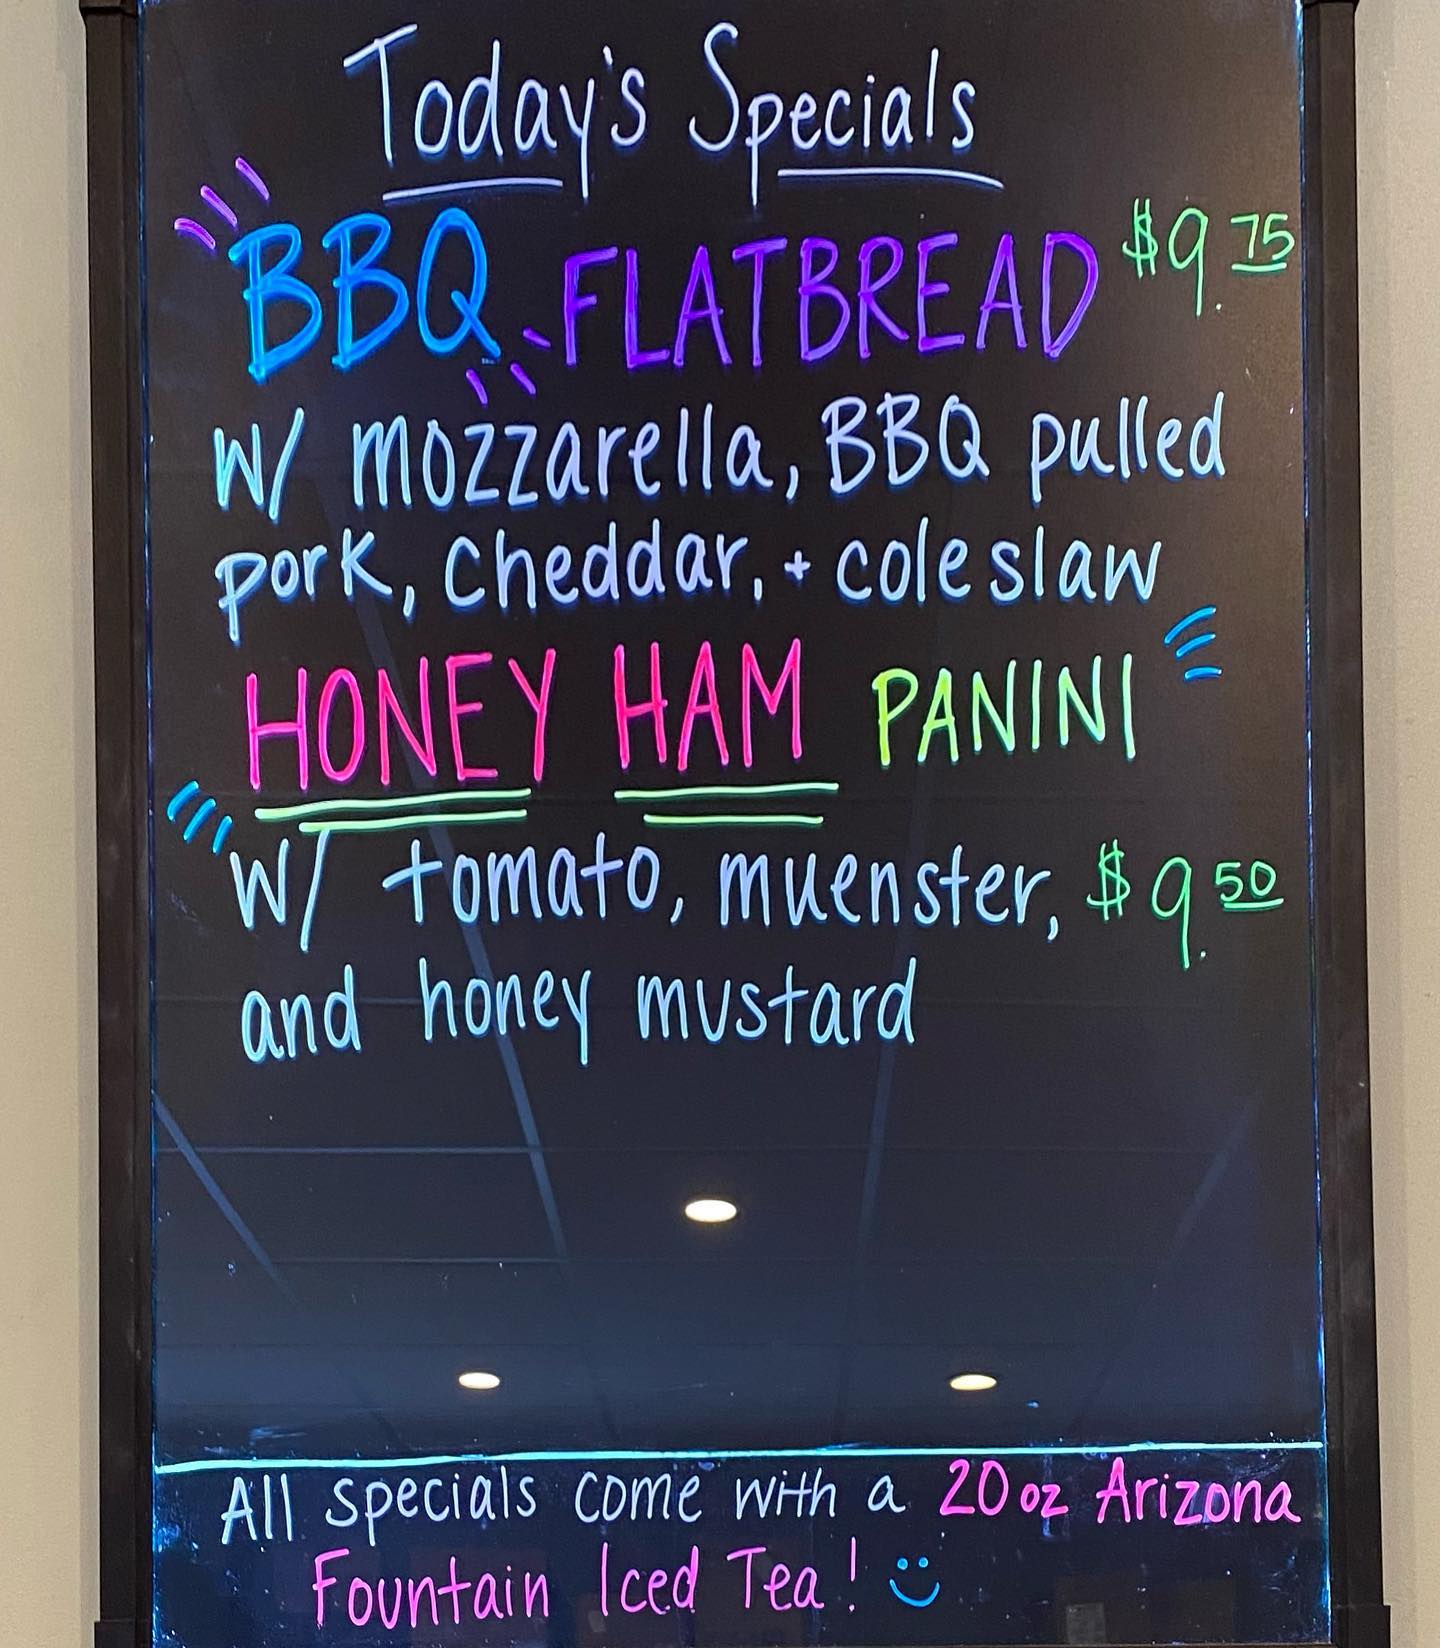 Today's Specials
BBQ FLATBREAD $9.75
W/ mozzarella, BBQ pulled
pork, cheddar, + coleslaw
HONEY HAM PANINI
W/ tomato, muenster, $9.50
and honey mustard
All specials come with a 20oz Arizona
Fountain Iced Tea!